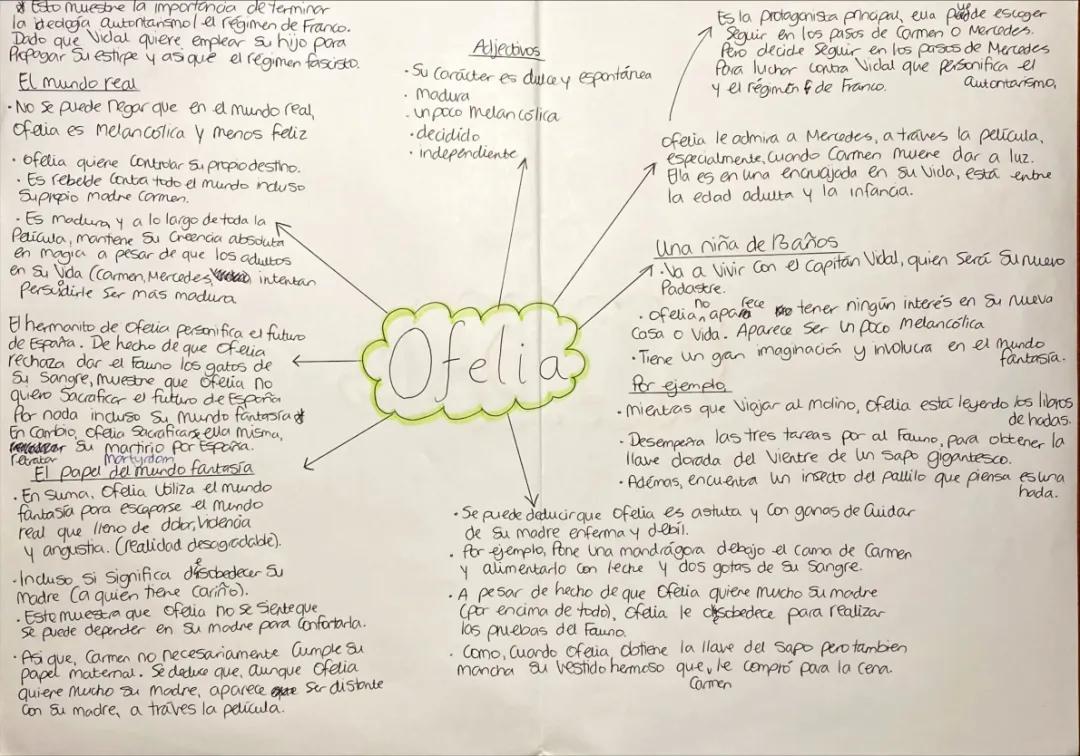 * Esto muestre la importancia de terminar
la ideología autoritarismo/el régimen de Franco.
Dado que Vidal quiere emplear su hijo para
Propagar su estirpe y asi que el régimen fascisto.
El mundo real
· No se puede negar que en el mundo real,
Ofelia es Melancólica y menos feliz
· Ofelia quiene controlar su propio destino.
· Es rebelde contra todo el mundo incluso
su propio madre Carmen.
· Es madura, y a lo largo de toda la
Película, mantene su creencia absoluta
en magia a pesar de que los adultos
en su vida (Carmen, Mercedes, intentan
persudirle ser más madura
El hermanito de Ofelia personifica el futuro
de España. De hecho de que Ofelia
rechaza dar el Fauno los gatos de
su sangre, muestre que Ofelia no
quiero sacraficar el futuro de España
Por nada incluso su mundo fantasía *
En cambio, Ofelia Sacraficarse ella misma,
retratar su martirio por España.
martyrdom
El papel del mundo fantasía
· En suma, Ofelia utiliza el mundo
fantasía para escaparse el mundo
real que lleno de dolor, violencia
y angustia. (realidad desagradable).
· Incluso si significa desobedecer su
madre (a quien tiene cariño).
· Esto muestra que Ofelia no se siente que
se puede depender en su madre para confortarla.
· Asi que, Carmen no necesariamente cumple su
papel maternal. Se deduce que, aunque Ofelia
quiere mucho su madre, aparece ser distante
con su madre, a tráves la película.
Adjectivos
· Su carácter es dulce y espontánea
· madura
· un poco melancólica
· decidido
· independiente
Ofelia
Es la protagonista principal, ella puede escoger
seguir en los pasos de Carmen o Mercedes.
Pero decide seguir en los pasos de Mercedes
Para luchar contra Vidal que personifica el
y el régimen de Franco. autoritarismo,
Ofelia le admira a Mercedes, a tráves la película,
especialmente, cuando Carmen muere dar a luz.
Ella es en una encrucijada en su vida, está entre
la edad adulta y la infancia.
Una niña de 13 años
· Va a vivir con el capitán Vidal, quien será su nuevo
Padastre.
· Ofelia no aparece tener ningún interés en su nueva
casa o vida. Aparece ser un poco melancólica
· Tiene un gran imaginación y involucra en el mundo
fantasía.
Por ejemplo
· mientras que viajar al molino, Ofelia está leyendo los libros
de hadas.
· Desempeña las tres tareas por al Fauno, para obtener la
llave dorada del vientre de un sapo gigantesco.
· Además, encuentra un insecto del palilo que piensa es una
hada.
· Se puede deducir que Ofelia es astuta y con ganas de cuidar
de su madre enferma y débil.
· Por ejemplo, Pone una mandrágora debajo el cama de Carmen
y alimentarlo con leche y dos gotas de su sangre.
· A pesar de hecho de que Ofelia quiere mucho su madre
(por encima de todo), Ofelia le desobedece para realizar
las pruebas del Fauno.
· Como, cuando Ofelia, obtiene la llave del sapo pero tambien
mancha su vestido hermoso que, le compró para la cena.
Carmen